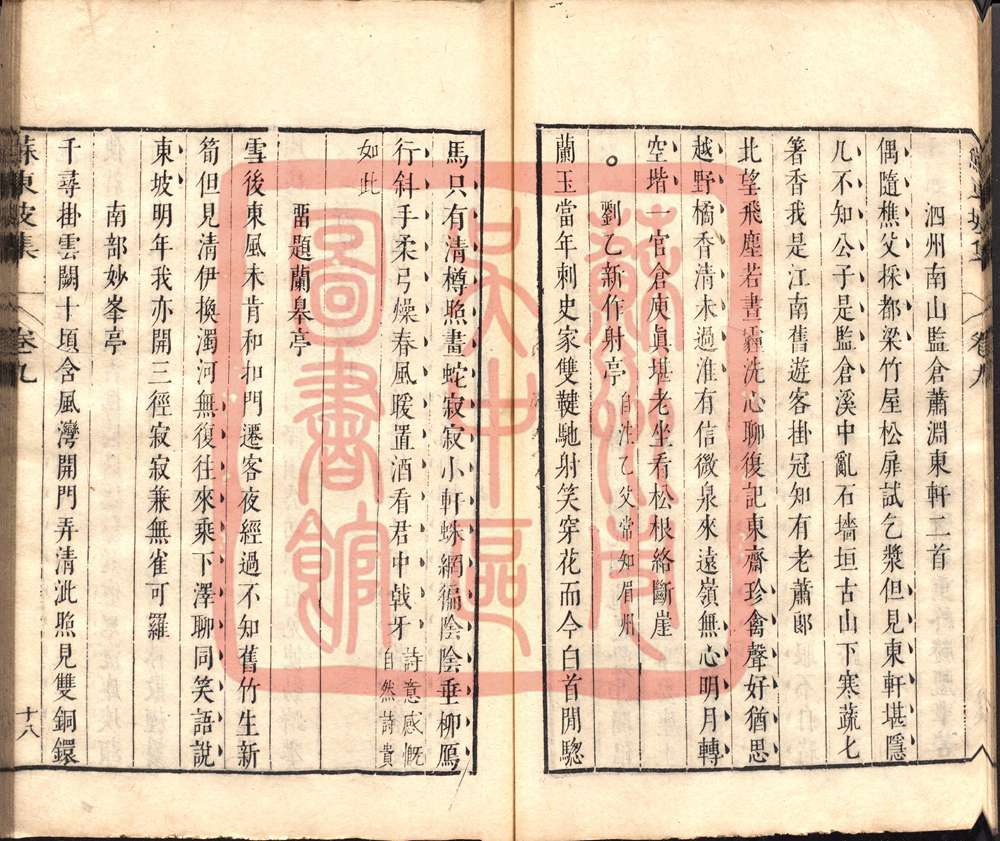 泗州南山監倉蕭淵東軒二首
偶隨樵父採都梁竹屋松扉試乞漿但見東軒堪隱
几不知公子是監倉溪中亂石墻垣古山下寒蔬匕
箸香我是江南舊遊客掛冠知有老蕭郎
北望飛塵若晝霾洗心聊復記東齋珍禽聲好猶思
越野橘香清未過淮有信微泉來遠嶺無心明月轉
空堦一官倉庾眞堪老坐看松根絡斷崖
劉乙新作射亭 自注乙父常知眉州
蘭玉當年刺史家雙鞬馳射笑穿花而今白首閒驄
馬只有清樽照畫蛇寂寂小軒蛛網徧陰陰垂柳鴈
行斜手柔弓燥春風暖置酒看君中戟牙 詩意感慨自然詩貴
如此
畱題蘭皋亭
雪後東風未肯和扣門遷客夜經過不知舊竹生新
筍但見清伊換濁河無復往來乘下澤聊同笑語說
東坡明年我亦開三徑寂寂兼無雀可羅
南部妙峯亭
千尋掛雲闕十頃含風灣開門弄清泚照見雙銅鐶
蘇東坡集 卷九
十八
蘇州市吳中區圖書館